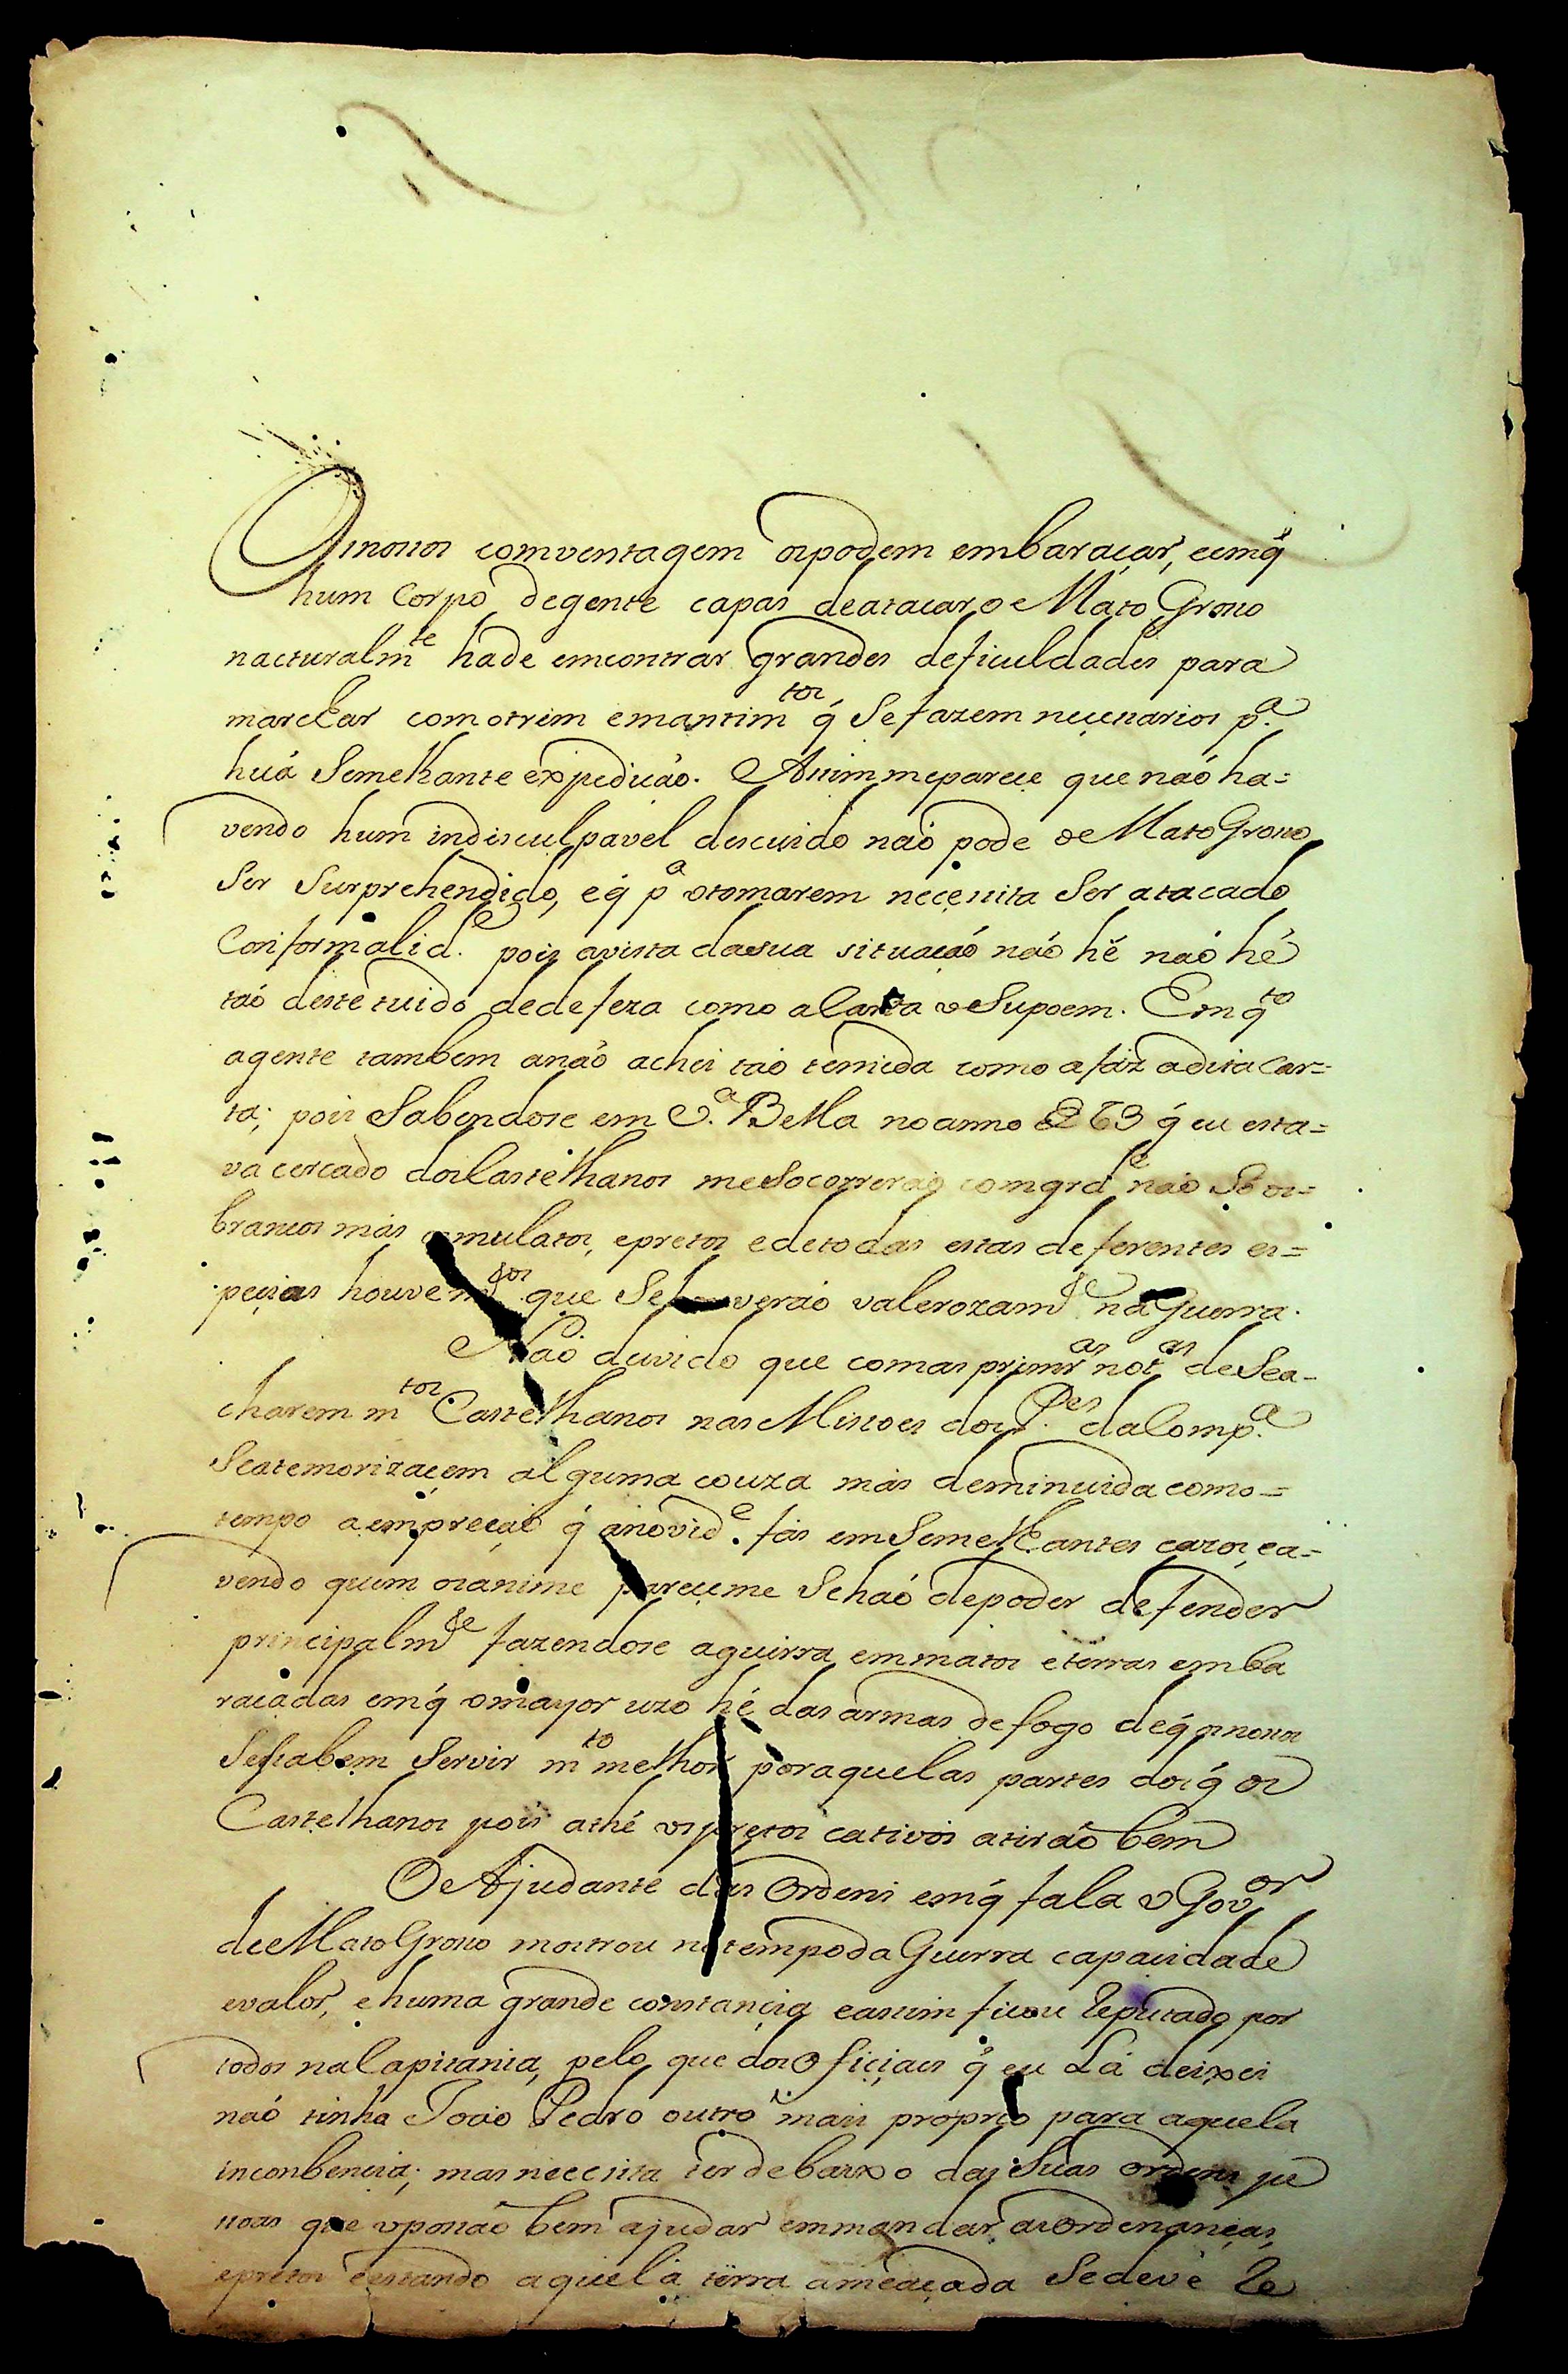 Osnossos comventagem ospodem embaraçar, eemq̃
hum Corpo degente capas deatacar o Mato Grosso
nacturalm.te hade emcontrar grandes deficuldades para
marchar comotrem emantim.tos q̃ Sefazem neçessarios p.a
huã Semelhante expedição. Assim mepareçe que naõ ha=
vendo hum indisculpavel descuido naõ pode o Mato Grosso
Ser Surprehendido, eq̃ p.a otomarem neçessita Ser atacado
Conformalid.e pois avista dasua situaçaõ naõ hé naõ hé
taõ destetuido dedefeza como aCarta oSupoem. Emq.to
agente tambem anaõ achei taõ temida como afaz adita Car=
ta; pois Sabendose em V.a Bella noanno de 63 q̃ eu esta=
va cercado dosCastelhanos meSocorreraõ comgrd.e naõ Só os=
brancos mas osmulatos, epretos edetodas estas deferentes es=
peçias houve m.tos que Se houveraõ valerozam.te na Guerra.
Naõ duvido que comas primr.as not.as deSea=
charem m.tos Castelhanos nas Missoes dos P.es daComp.a
Seatemorizaçem alguma couza mas deminuida como=
tempo aempreçaõ q̃ anovid.e fas emSemelhantes cazos, ea=
vendo quem osanime pareçeme Sehaõ depoder defender
principalm.te fazendose aguerra emmatos eterras emba
raçadas emq̃ omayor uzo hé das armas defogo deq̃ osnossos
Sesabem Servir m.to melhor poraquelas partes dosq̃ os
Castelhanos pois athé ospretos cativos atiraõ bem
O Ajudante das Ordens emq̃ fala oGov.or
de Mato Grosso mostrou notempoda Guerra capaçidade
evalor, ehuma grande constançia eassim ficou Reputado por
todos naCapitania, pelo que dosOfiçiaes q̃ eu Lá deixei
naõ tinha Joaõ Pedro outro mais proprio para aquela
inconbencia; mas neecsita ter debaixo das Suas ordens pe
ssoas que opossaõ bem ajudar emmandar asOrdenanças,
epretos eestando aquela terra ameaçada Sedeve Re